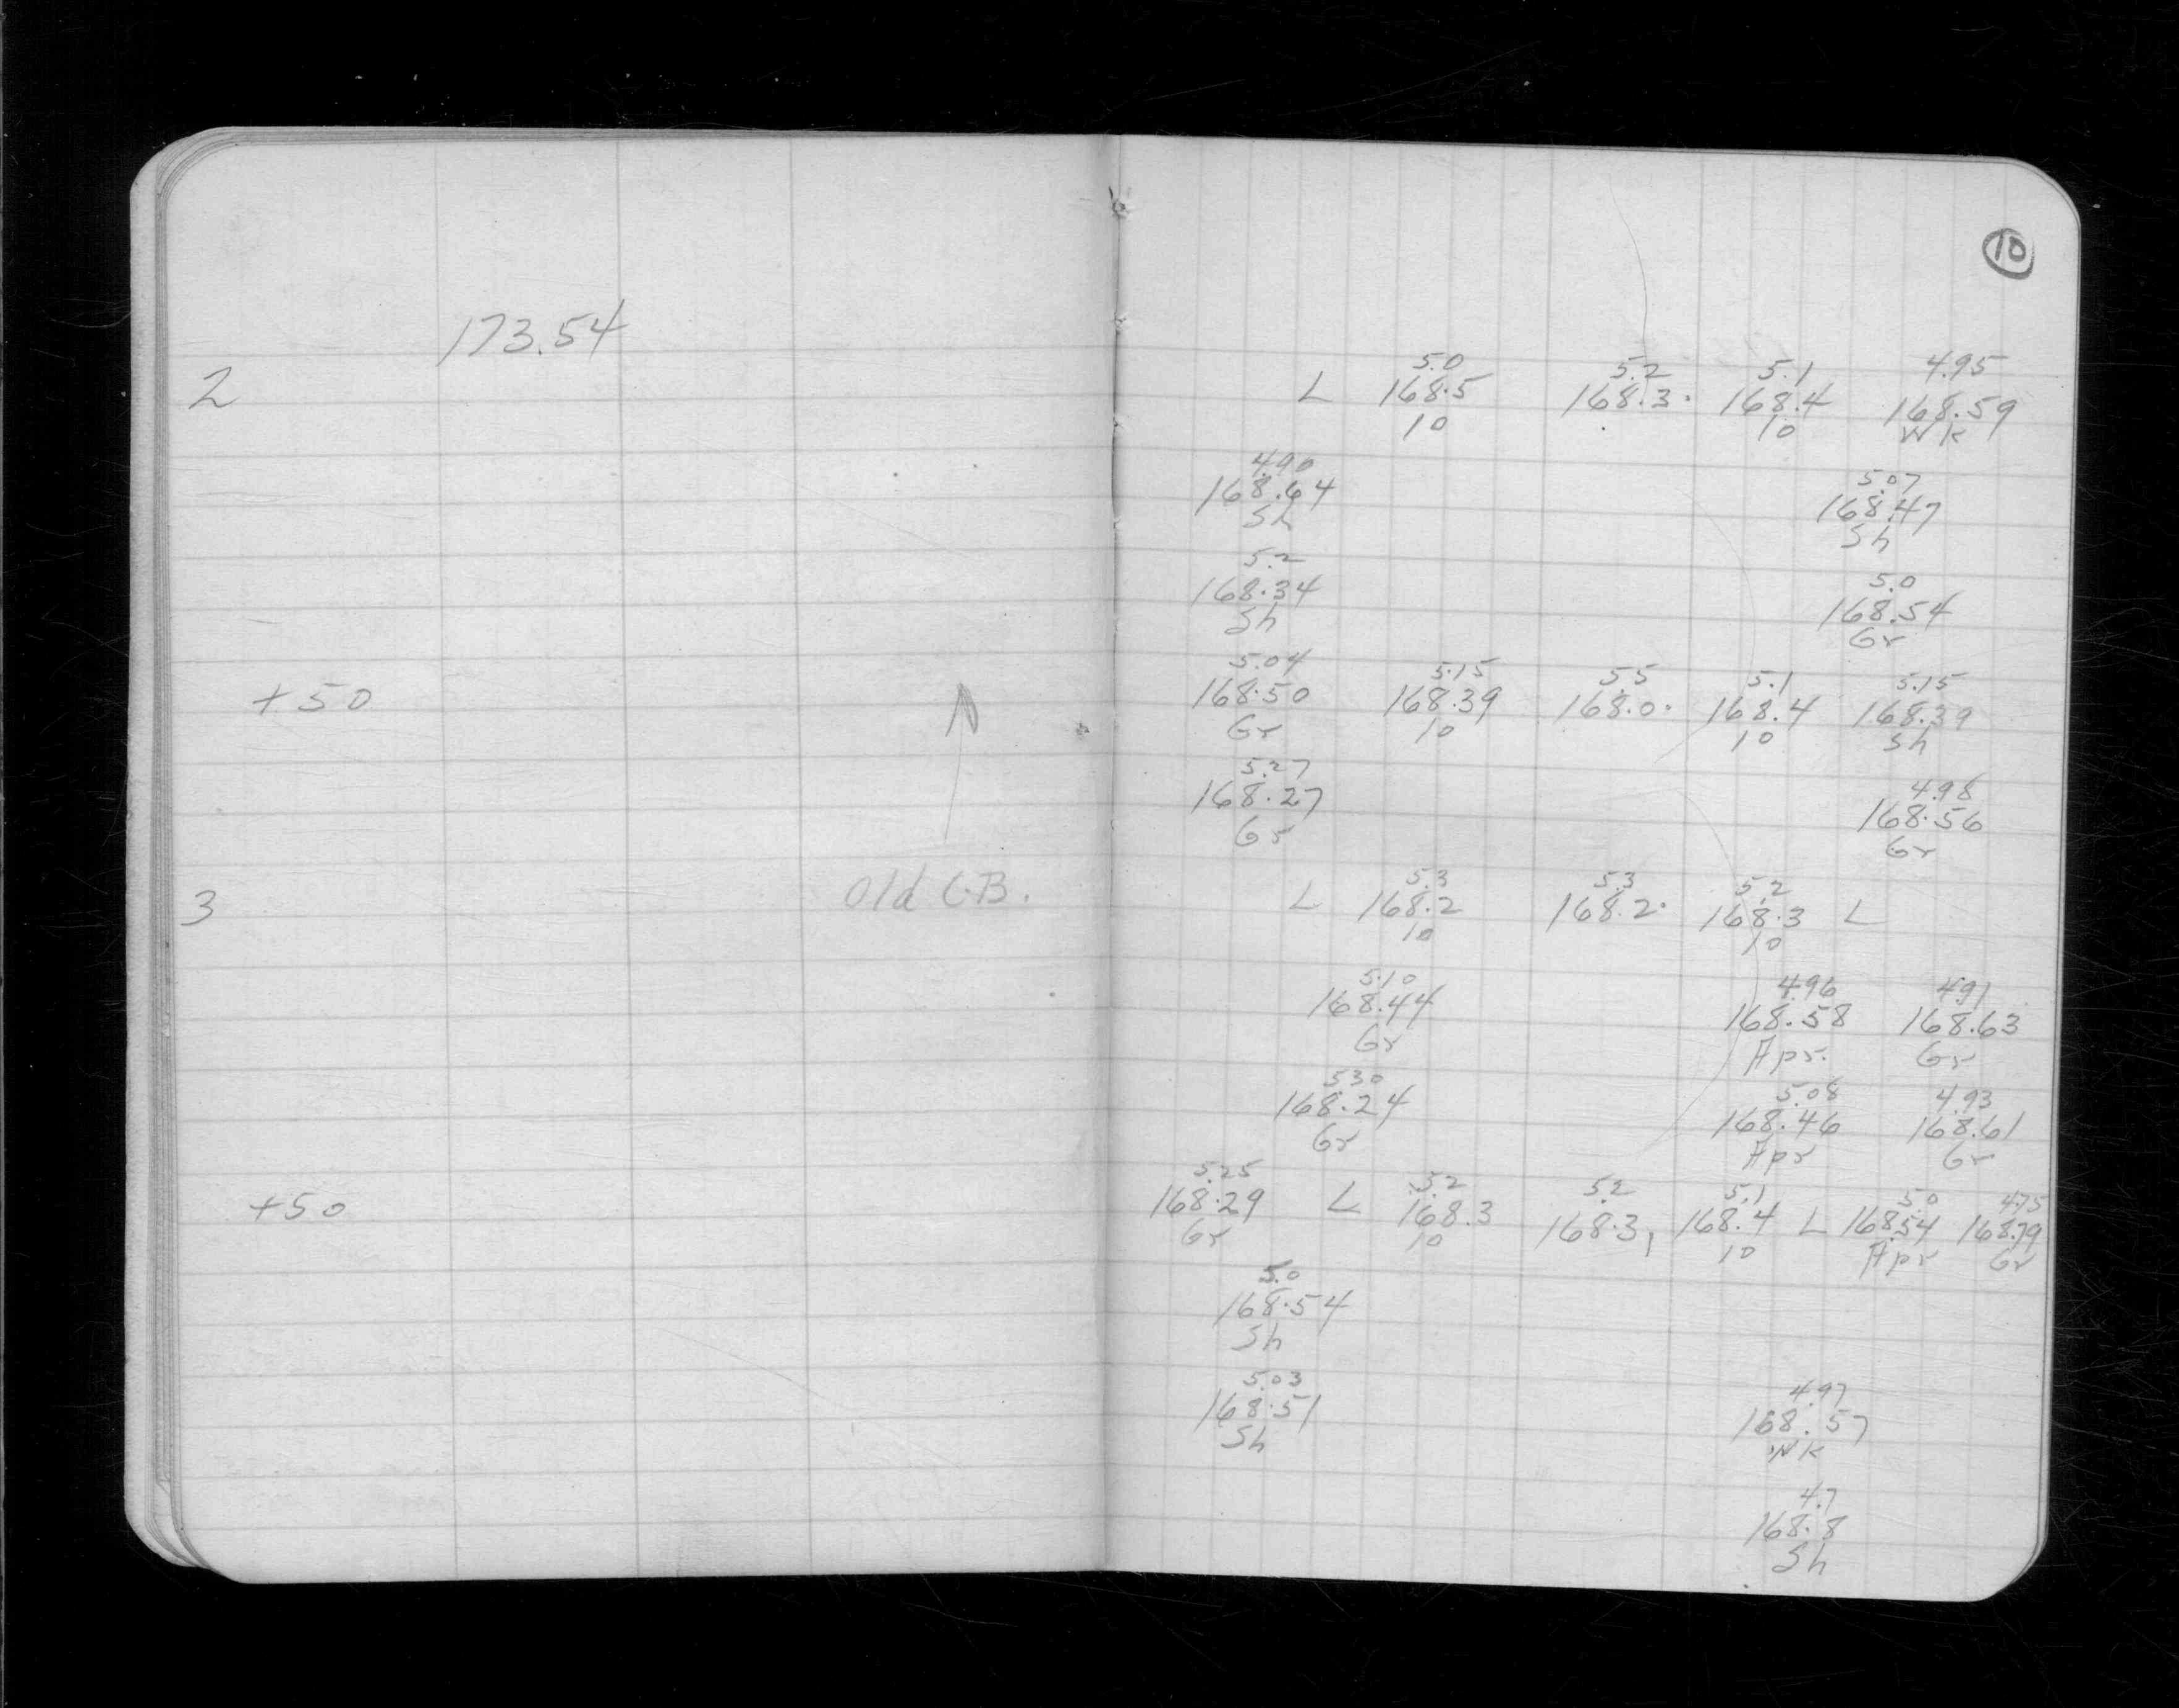 10
173.54
5.0 5.2 5.1 4.95
2 L 168.5 168.3. 168.4 168.59
10 10 WK
4.90 5.07
168.64 168.47
Sh Sh
5.2 5.0
168.34 168.54
Sh Gr
5.04 5.15 5.5 5.1 5.15
+50 168.50 168.39 168.0. 168.4 168.39
Gr 10 10 Sh
5.27 4.98
168.27 168.56
Gr Gr
5.3 5.3 5.2
3 Old C.B. L 168.2 168.2. 168.3 L
10 10
5.10 4.96 4.91
168.44 168.58 168.63
Gr Apr. Gr
5.30 5.08 4.93
168.24 168.46 168.61
Gr Apr Gr
5.25 5.2 5.2 5.1 5.0 4.75
+50 168.29 L 168.3 168.3, 168.4 L 168.54 168.79
Gr 10 10 Apr Gr
5.0
168.54
Sh
5.03 4.97
168.51 168.57
Sh WK
4.7
168.8
Sh